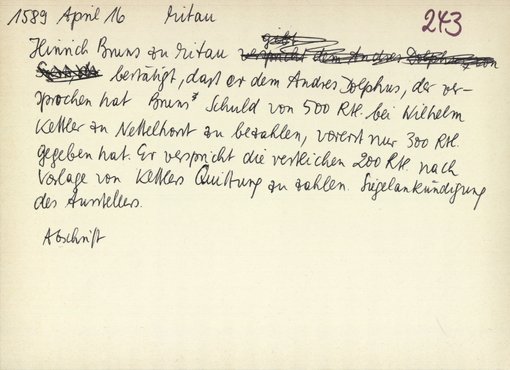 1589 April 16 Mitau 243
Hinrich Bruns zu Mitau
bestätigt, dass er dem Andres Dolphus, der ver-
sprochen hat Bruns' Schuld von 500 Rtl. bei Wilhelm
Kettler zu Nettelhorst zu bezahlen, vorerst nur 300 Rtl.
gegeben hat. Er verspricht die restlichen 200 Rtl. nach
Vorlage von Kettlers Quittung zu zahlen. Siegelankündigung
des Ausstellers.
Abschrift